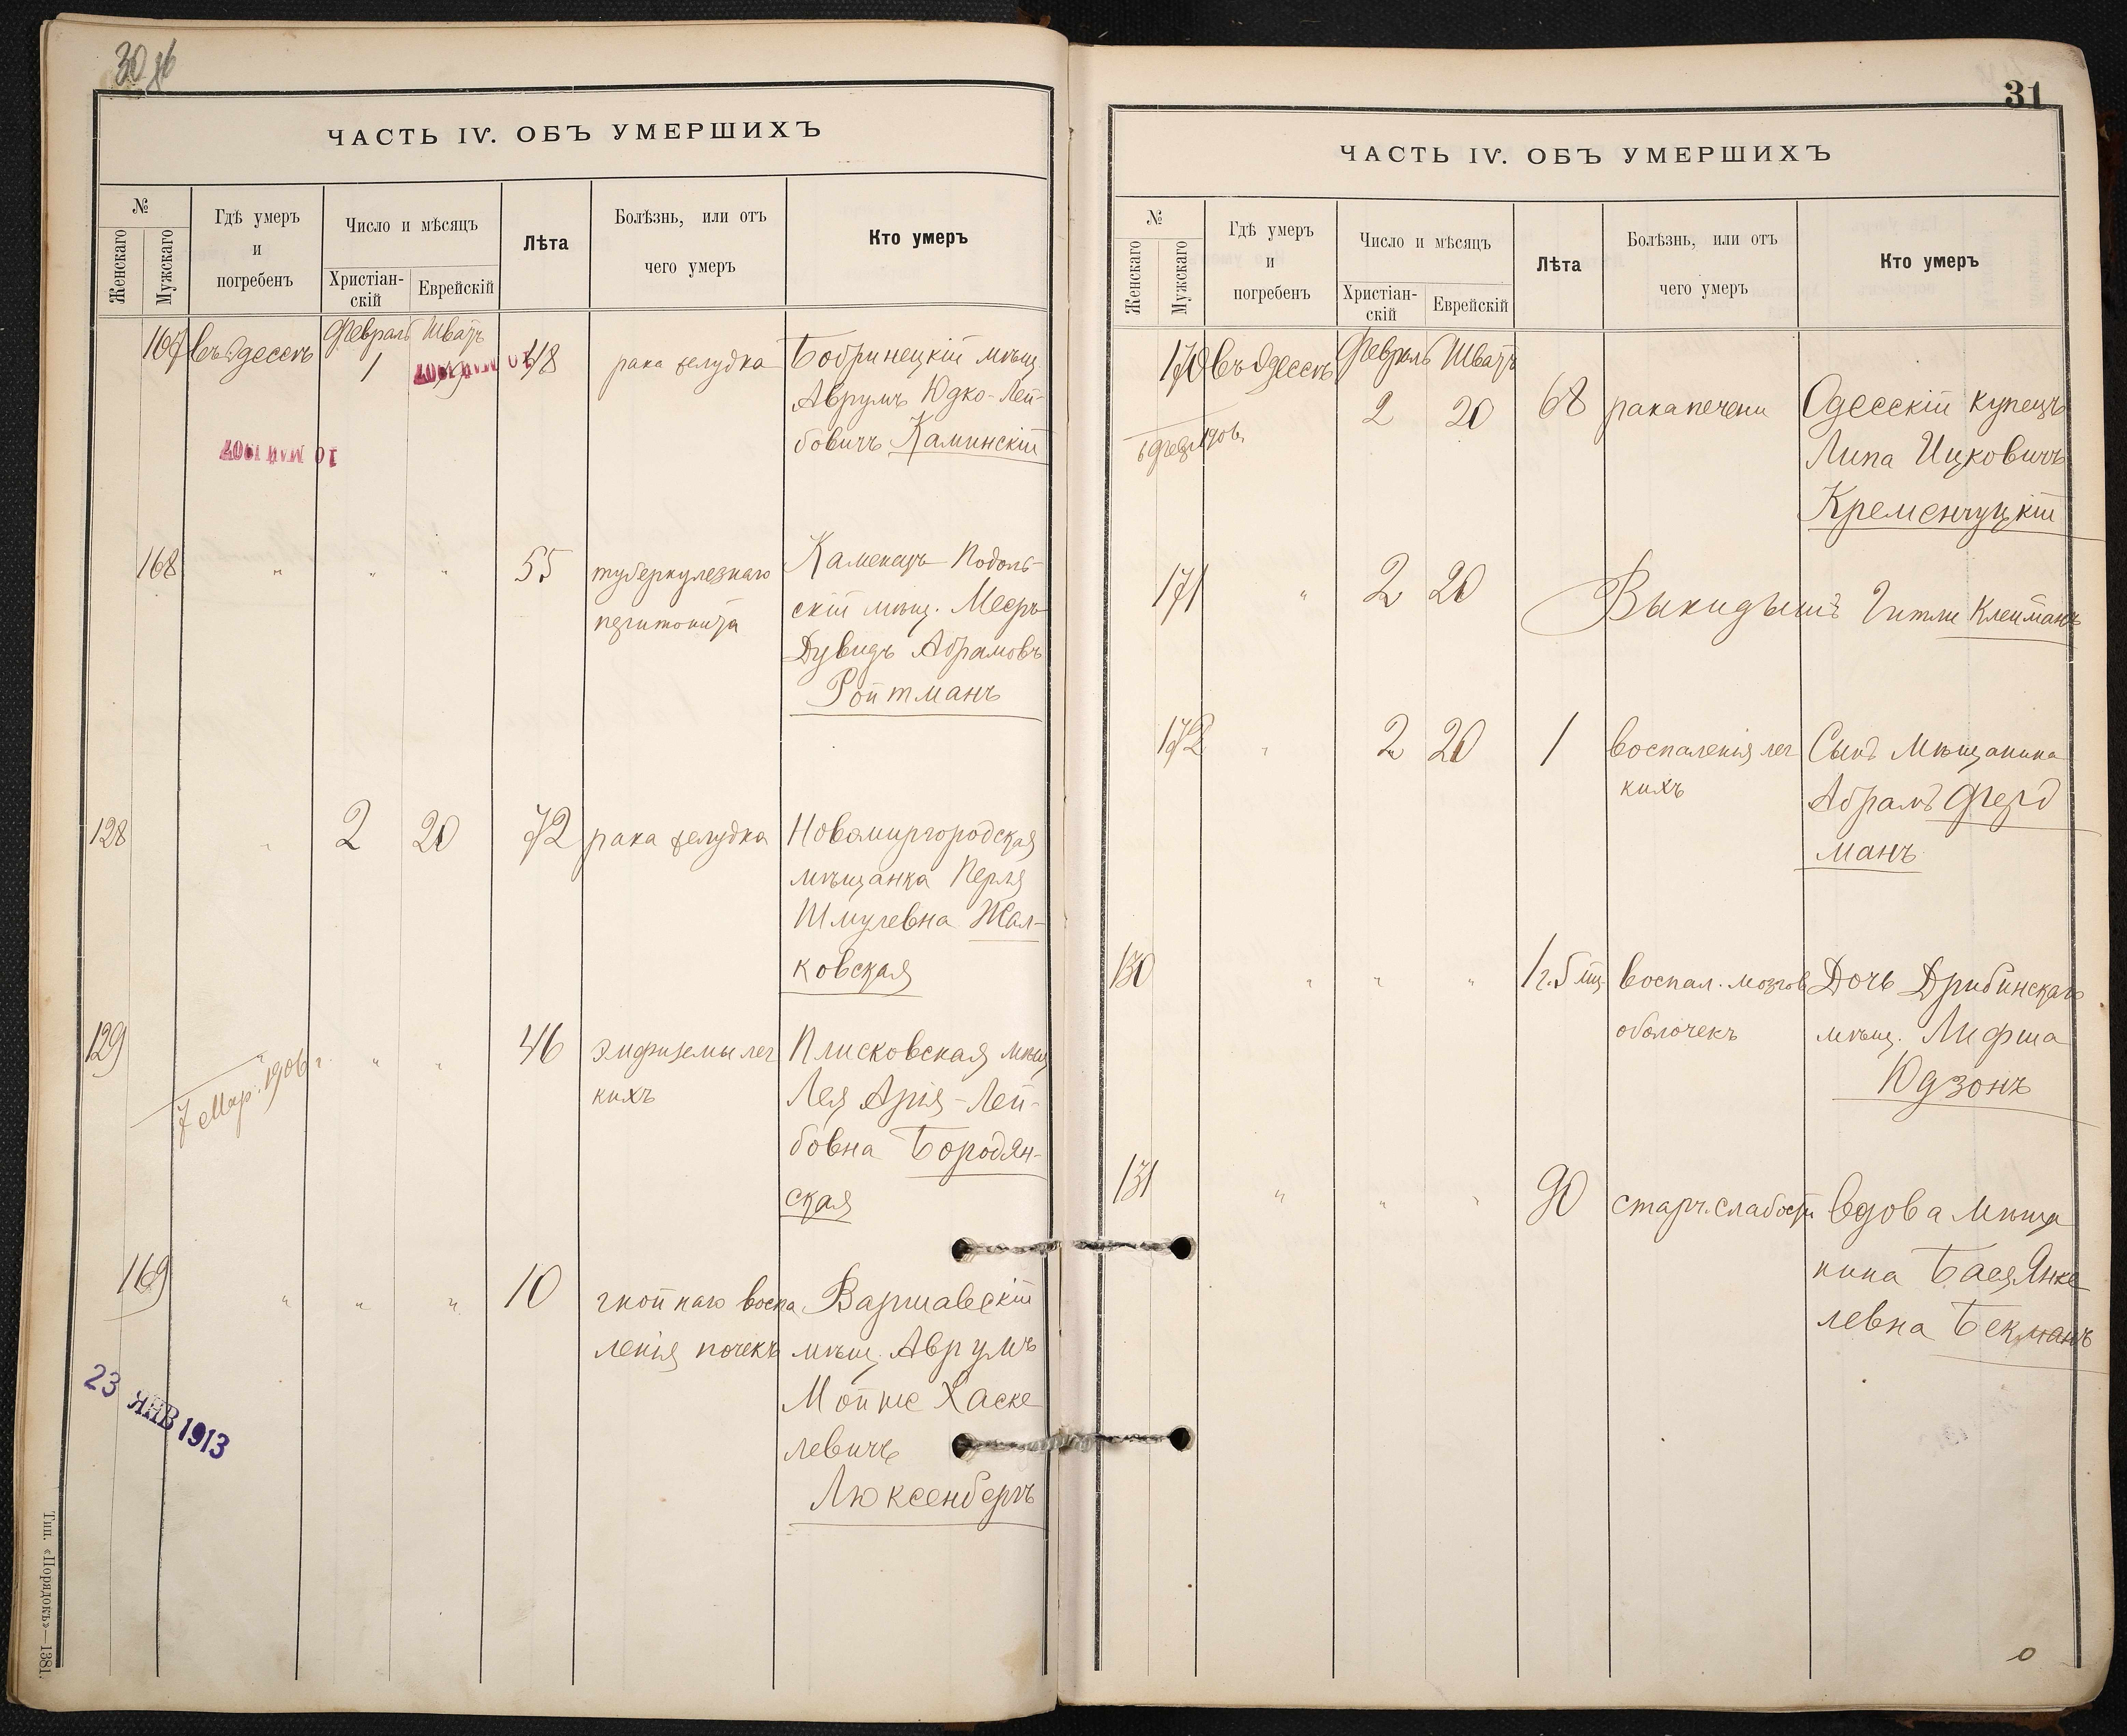 30 об
ЧАСТЬ IV. ОБЪ УМЕРШИХЪ
№
Женскаго
Мужскаго
Гдѣ умеръ
и
погребенъ
Число и мѣсяцъ
Христіан-
скій
Еврейскій
Лѣта
Болѣзнь, или отъ
чего умеръ
Кто умеръ
167 въ Одессѣ Февраль Шватъ
1 19 48 рака желудка Бобринецкій мѣщ.
Аврумъ Юдко-Лей-
бовичъ Каминскій
10 МАЯ 1907
10 МАЯ 1907
168 " " " 55 туберкулезнаго Каменецъ Подоль-
перитонита скій мѣщ. Мееръ
Дувидъ Абрамовъ
Ройтманъ
128 " 2 20 72 рака желудка Новомиргородская
мѣщанка Перля
Шмулевна Жал-
ковская
129 " " " 46 эмфиземы лег Плисковская мѣщ
кихъ Лея Арія-Лей-
бовна Бородян-
ская
7 Мар. 1906 г.
169 " " " 10 гнойнаго воспа Варшавскій
ленія почекъ мѣщ. Аврумъ
Мойше Хаске
левичъ
Люксенбергъ
23 ЯНВ 1913
Тип. «Порядокъ»—1381.
31
ЧАСТЬ IV. ОБЪ УМЕРШИХЪ
№
Женскаго
Мужскаго
Гдѣ умеръ
и
погребенъ
Число и мѣсяцъ
Христіан-
скій
Еврейскій
Лѣта
Болѣзнь, или отъ
чего умеръ
Кто умеръ
170 въ Одессѣ Февраль Шватъ
2 20 68 рака печени Одесскій купецъ
6 февр 1906 Липа Ицковичъ
Кременчуцкій
171 " 2 20 Выкидышъ Гитли Клейманъ
172 " 2 20 1 воспаленія лег Сынъ Мѣщанина
кихъ Абрамъ Ферд
манъ
130 " " " 1 г. 5 мц. воспал. мозгов Дочь Дрибинскаго
оболочекъ мѣщ. Лифша
Юдзонъ
131 " " " 90 старч. слабости вдова мѣща
нина Бася Янке
левна Бекманъ